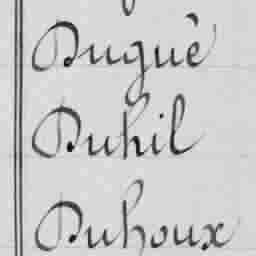 Dugué
Duhil
Duhoux